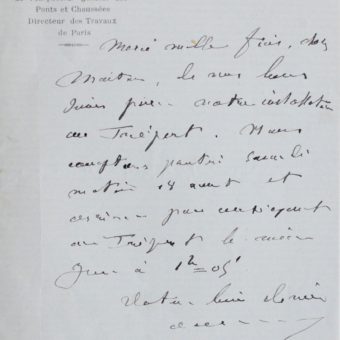 Ponts et Chaussées
Directeur des Travaux
de Paris
Merci mille fois, cher
Maître, de vos bons
pour notre installation
au Tréport. Nous
comptons partir samedi
matin 18 août et
au Tréport le même
jour à 1h 05'
Votre bien dévoué